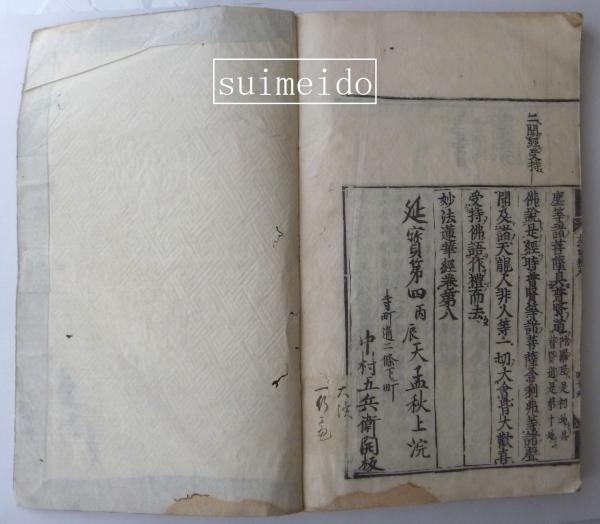 suimeido
二聞經受持
塵等諸菩薩具普賢道
佛說是經時普賢等諸菩薩舍利弗等諸聲
聞及諸天龍人非人等一切大會皆大歡喜
受持佛語作禮而去
妙法蓮華經卷第八
延寶第四丙辰天孟秋上浣
寺町通二條下町
中村五兵衛開板